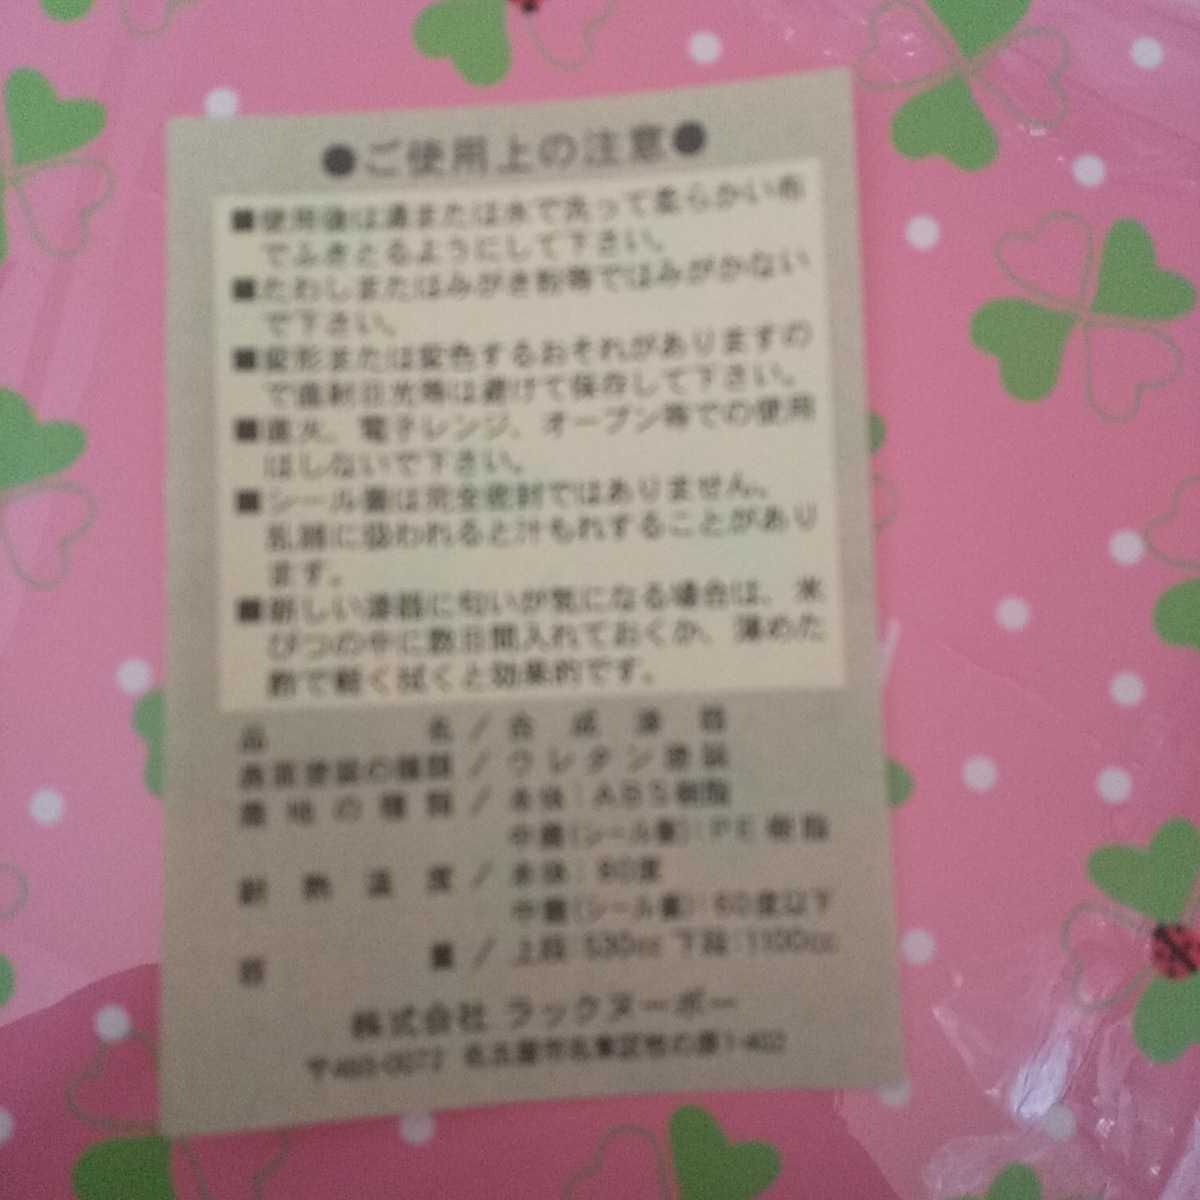 ●ご使用上の注意●
■使用後は湯または水で洗って柔らかい布
でふきとるようにして下さい。
■たわしまたはみがき粉等ではみがかない
で下さい。
■変形または変色するおそれがありますの
で直射日光等は避けて保存して下さい。
■直火、電子レンジ、オーブン等での使用
はしないで下さい。
■シール蓋は完全密封ではありません。
乱雑に扱われると汁もれすることがあり
ます。
■新しい漆器に匂いが気になる場合は、米
びつの中に数日間入れておくか、薄めた
酢で軽く拭くと効果的です。
品名/合成漆器
表面塗装の種類/ウレタン塗装
素地の種類/本体:ABS樹脂
中蓋(シール蓋):PE樹脂
耐熱温度/本体:80度
中蓋(シール蓋):60度以下
容量/上段:530cc 下段:1100cc
株式会社 ラックヌーボー
〒465-0072 名古屋市名東区牧の原1-402